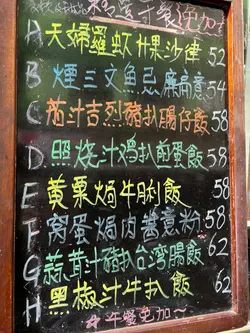 A 天婦羅蝦什果沙律 52
B 煙三文魚忌廉扁意 54
C 茄汁吉烈豬扒腸仔飯 58
D 照烧汁鸡扒煎蛋飯 58
E 黄粟焗牛脷飯 58
F 窝蛋焗肉醬意粉 58
G 蒜茸汁豬扒台湾腸飯 62
H 黑椒汁牛扒飯 62